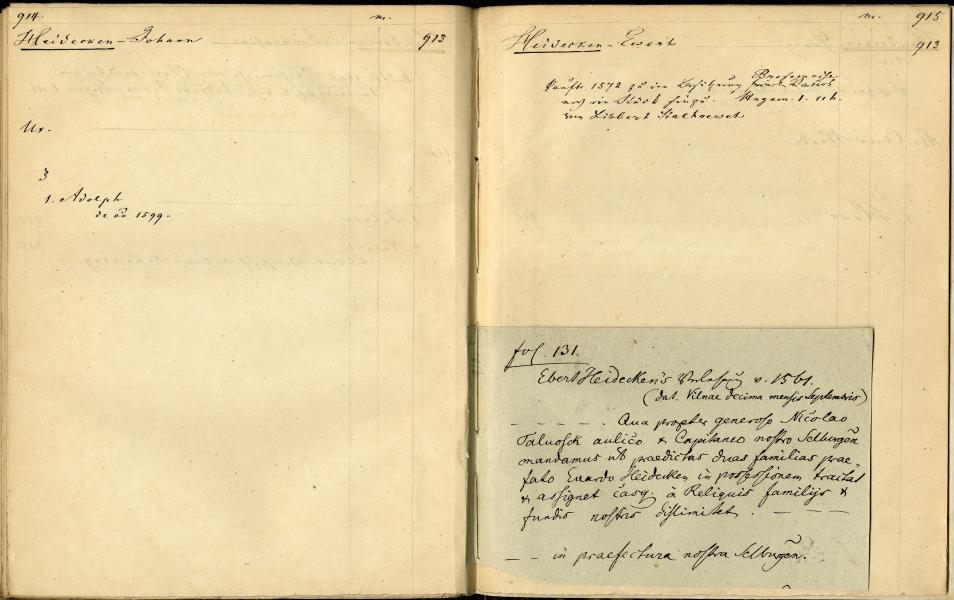 914.
m.
Heidecken - Johann
913
Ux.
1. Adolph
de ao 1599.
m.
915
Heidecken - Ewert
913
kauft 1572 zu der Besitzung
noch ein Stück hinzu. Wagem. 1. 116.
von Libbert
fol. 131.
Ebert Heidecken's v. 1561.
(dat. Vilnae decima mensis Septembris)
- - - - - . Qua propter generoso Nicolao
Taluosck aulico & Capitaneo nostro Selburgeñ
mandamus ut praedictas duas familias prae-
fato Evardo Heidecken in possessionem tradat
& assignet easq. à Reliquis familijs &
fundis nostris dislimitet. - - - -
- - in praefectura nostra Selburgeñ.